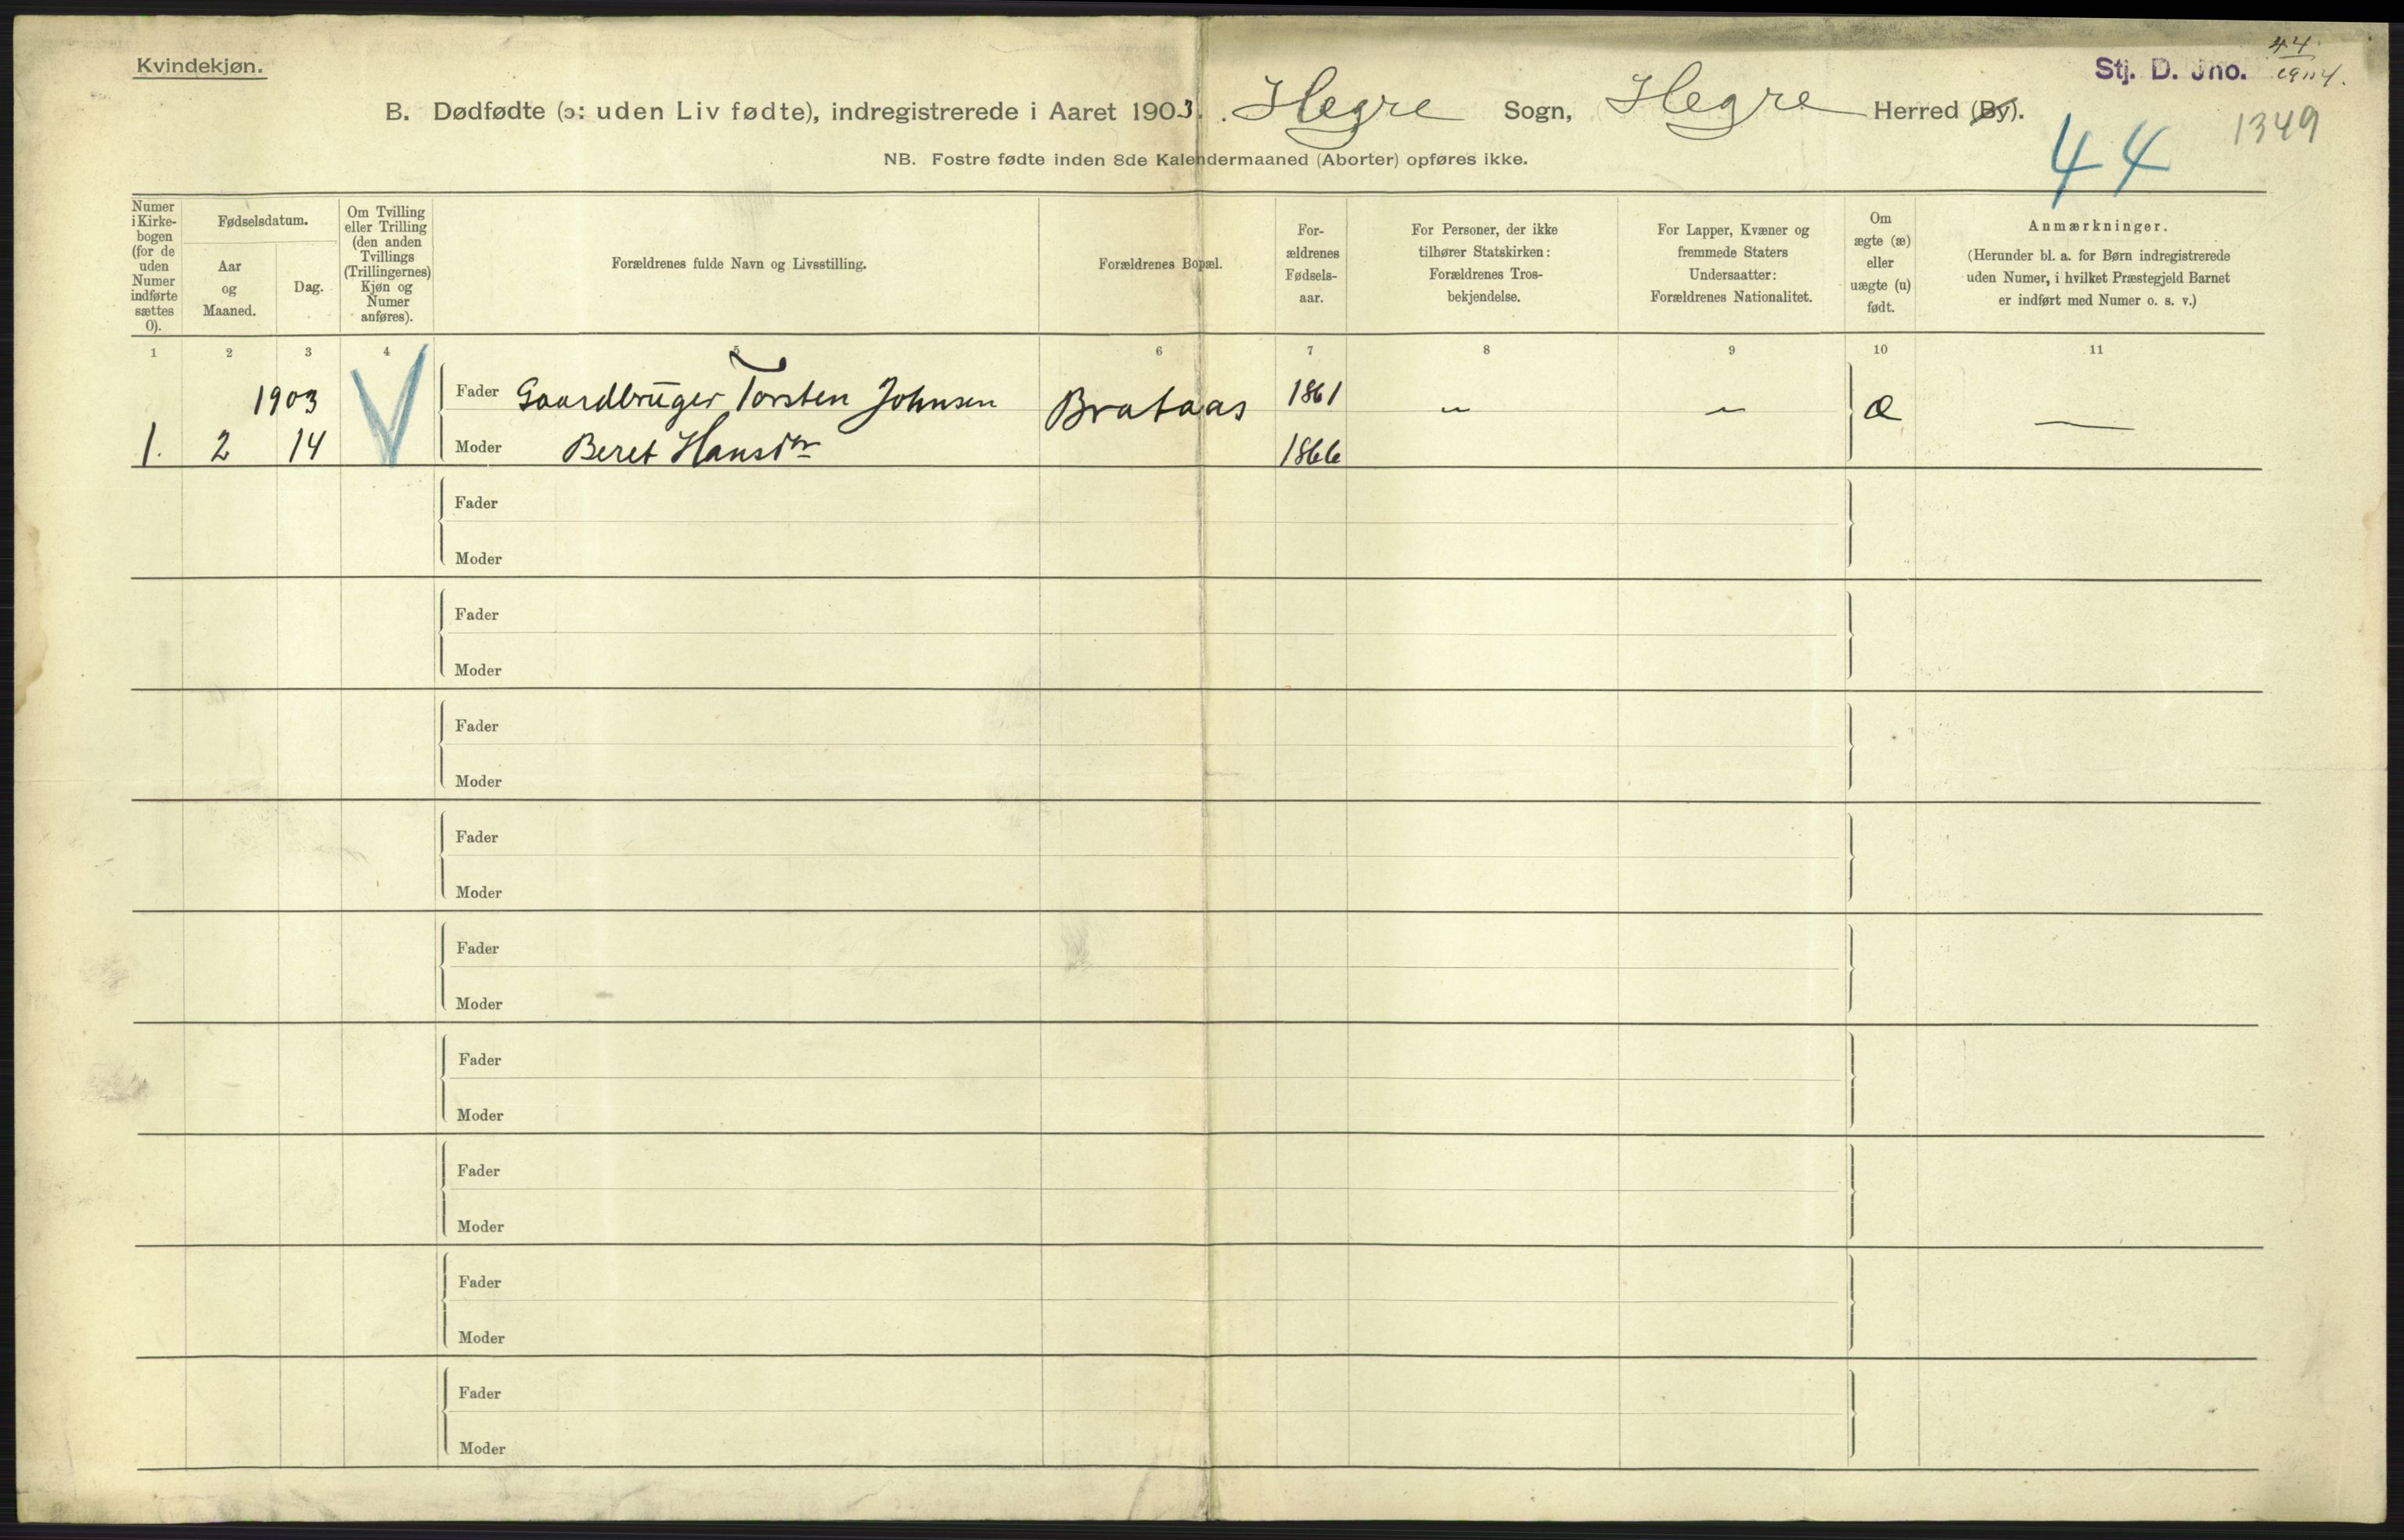 Kvindekjøn.
Stj. D. Jno. 44/1904.
B. Dødfødte (ɔ: uden Liv fødte), indregistrerede i Aaret 1903. Hegre Sogn, Hegre Herred (By).
44
1349
NB. Fostre fødte inden 8de Kalendermaaned (Aborter) opføres ikke.
Numer
i Kirke-
bogen
(for de
uden
Numer
indførte
sættes
0).
Fødselsdatum.
Aar
og
Maaned.
Dag.
Om Tvilling
eller Trilling
(den anden
Tvillings
(Trillingernes)
Kjøn og
Numer
anføres).
Forældrenes fulde Navn og Livsstilling.
Forældrenes Bopæl.
For-
ældrenes
Fødsels-
aar.
For Personer, der ikke
tilhører Statskirken:
Forældrenes Tros-
bekjendelse.
For Lapper, Kvæner og
fremmede Staters
Undersaatter:
Forældrenes Nationalitet.
Om
ægte (æ)
eller
uægte (u)
født.
Anmærkninger.
(Herunder bl. a. for Børn indregistrerede
uden Numer, i hvilket Præstegjeld Barnet
er indført med Numer o. s. v.)
1 2 3 4 5 6 7 8 9 10 11
1903 Fader Gaardbruger Torsten Johnsen Brataas 1861 " " æ —
1. 2 14 Moder Beret Hansdtr 1866
Fader
Moder
Fader
Moder
Fader
Moder
Fader
Moder
Fader
Moder
Fader
Moder
Fader
Moder
Fader
Moder
Fader
Moder